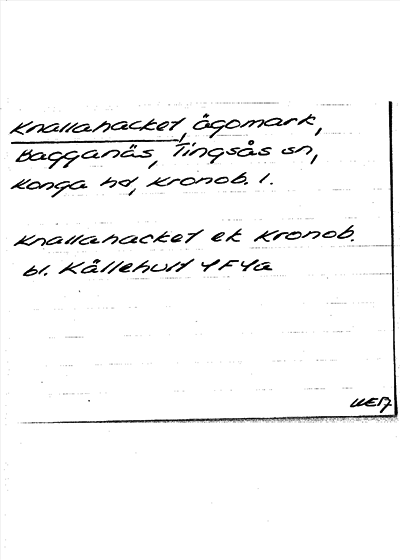 Knallahacket, ägomark,
Bagganäs, Tingsås sn,
Konga hd, Kronob. l.
Knallahacket ek Kronob.
bl. Källehult 4F4a